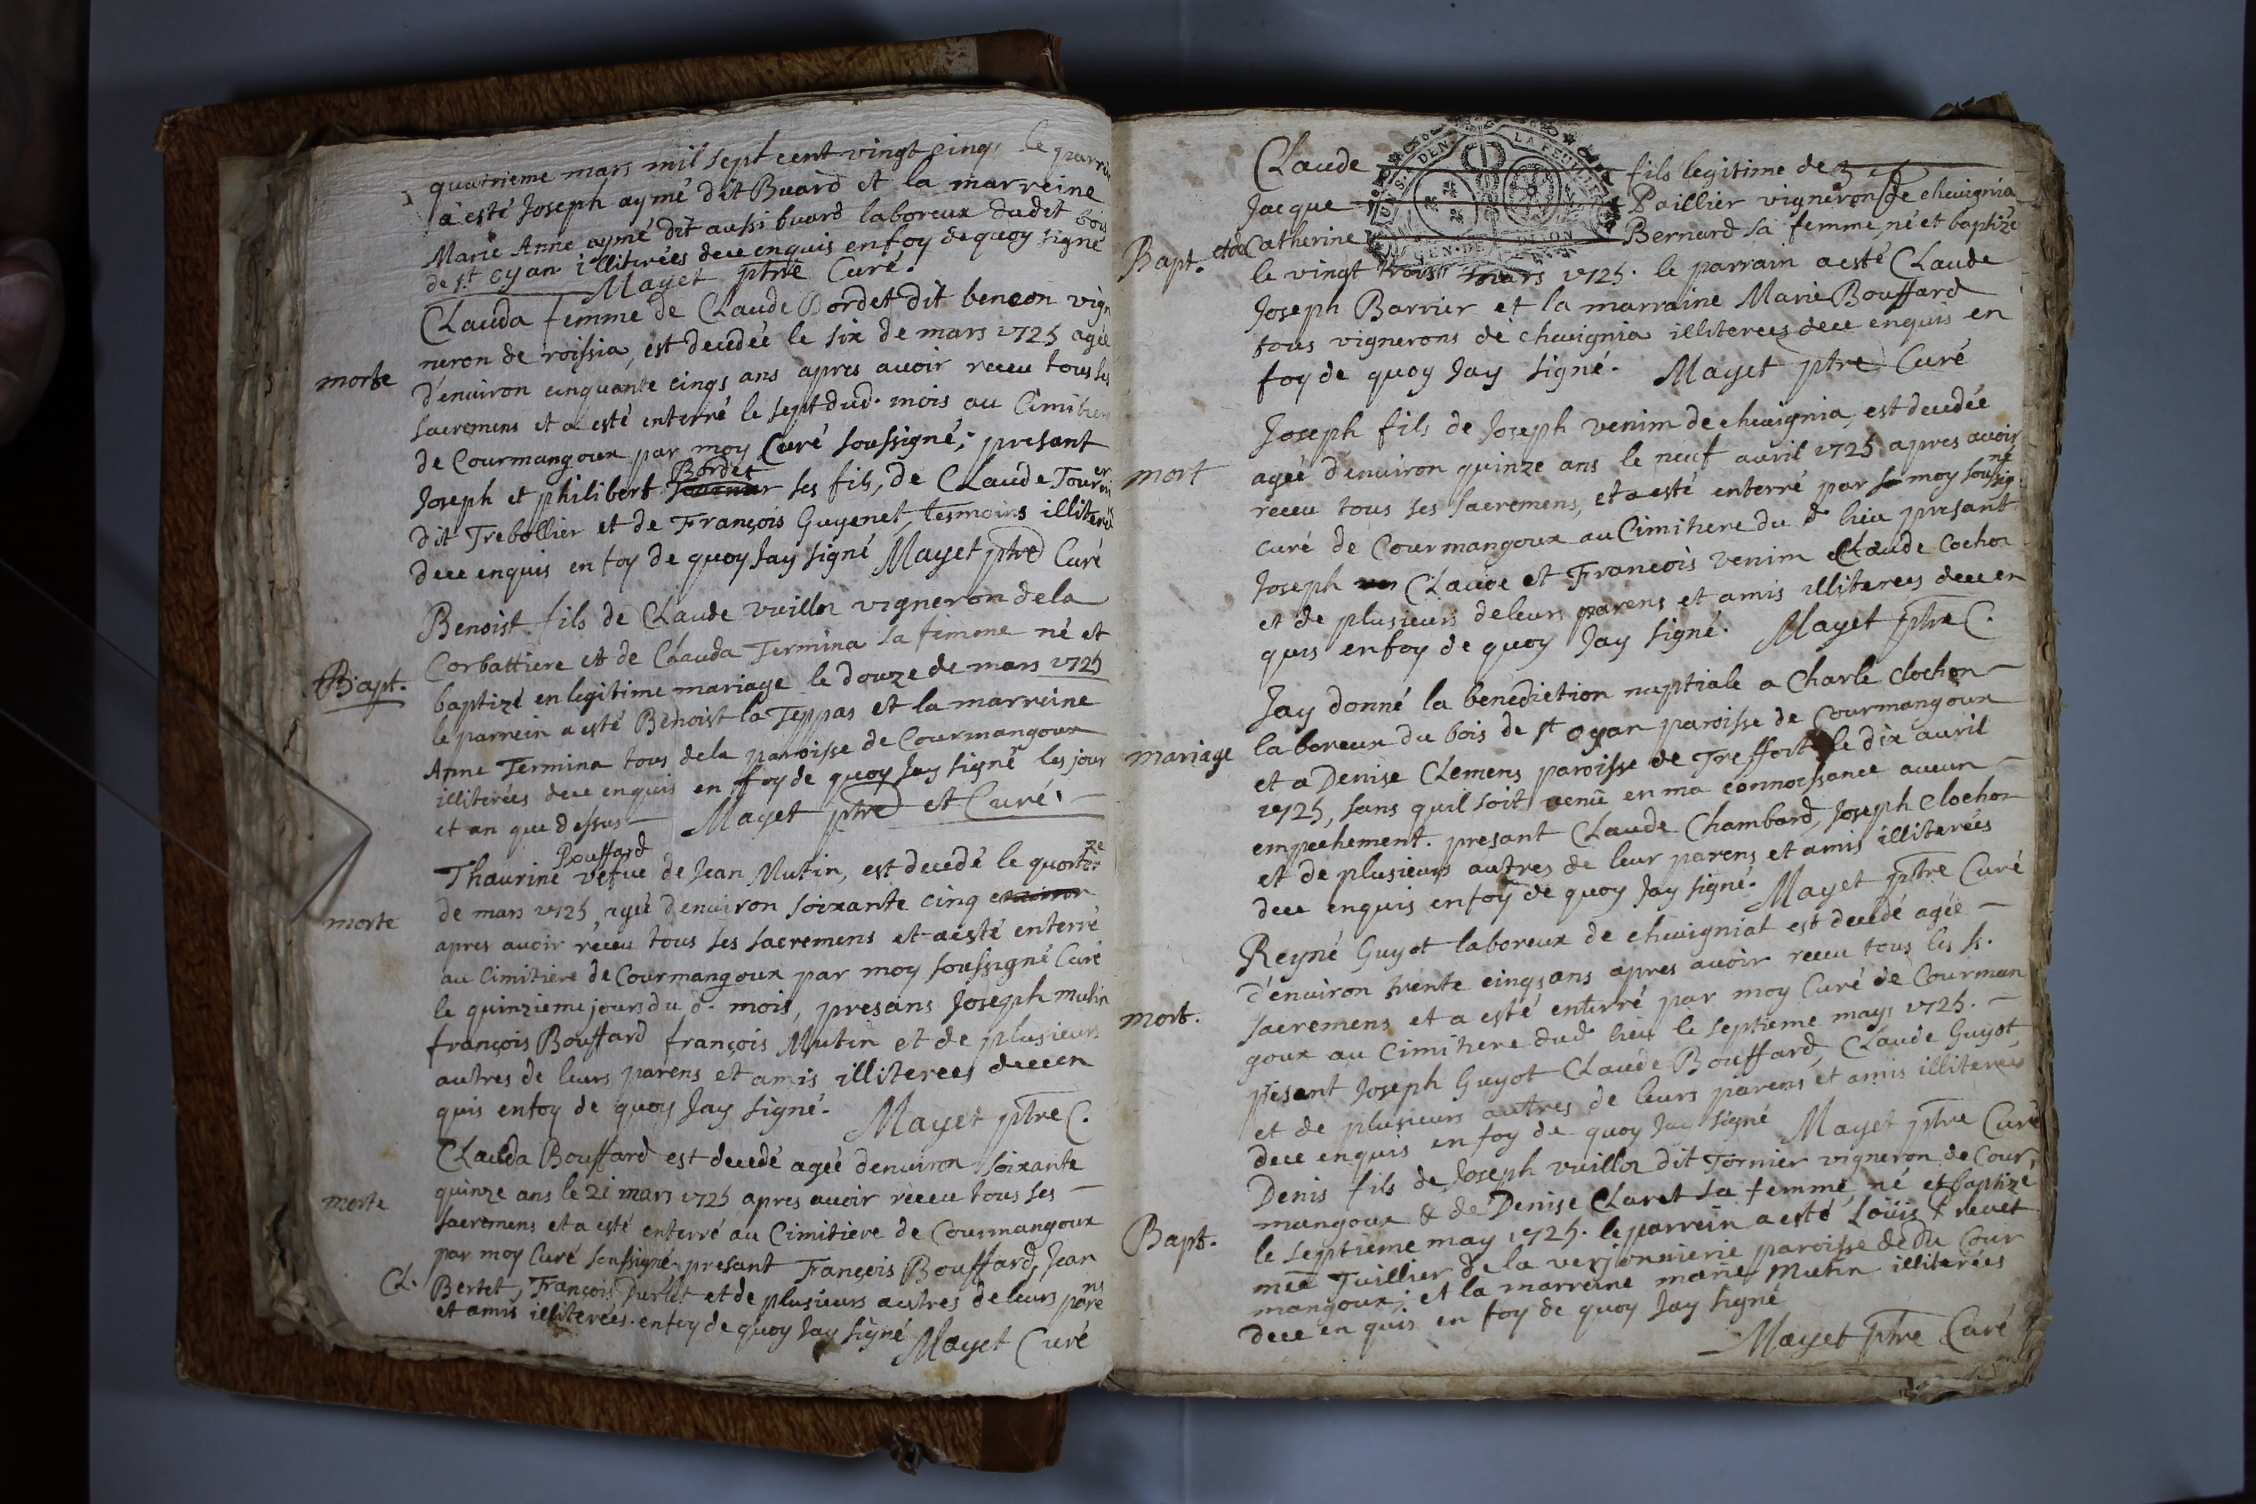 quatrieme mars mil sept cent vingt cinq, le parrein
a esté Joseph aymé dit Buard et la marreine
Marie Anne aymé dit aussi buard laboreux dudit bois
de st oyan illiterées dece enquis en foy de quoy signé
Mayet ptre Curé.
Clauda femme de Claude Bordet dit bencon vig
neron de roissia, est decedée le six de mars 1725 agée
morte
d'environ cinquante cinqs ans apres avoir receu tous ses
sacremens et a esté enterré le sept dud. mois au Cimitiere
de Courmangoux par moy Curé soussigné, presant
Bordet
Joseph et philibert ses fils, de Claude
dit Trebollier et de François Guyenet, tesmoins illiterés
dece enquis en foy de quoy Jay signé Mayet ptre Curé
Benoist fils de Claude vuillor vigneron dela
Corbattiere et de Clauda Termina sa femme né et
Bapt.
baptizé en legitime mariage le douze de mars 1725
le parrein a esté Benoist la Teppas et la marreine
Anne Termina tous dela paroisse de Courmangoux
illiterées dece enquis en foy de quoy Jay signé les jour
et an que dessus Mayet ptre et Curé.
Bouffard
Thaurine vefve de Jean Mutin, est decedé le quortze
morte
de mars 1725 agée denviron soixante cinq environ
apres avoir réceu tous ses sacremens et a esté enterré
au Cimitiere de Courmangoux par moy soussigné Curé
le quinzieme jours du d. mois, presans Joseph mutin
françois Bouffard françois Mutin et de plusieurs
autres de leurs parens et amis illiterees dece en
quis enfoy de quoy Jay signé. Mayet ptre C.
Clauda Bouffard est decedé agée denviron soixante
morte
quinze ans le 21 mars 1725 apres avoir réceu tous ses
sacremens et a esté enterré au Cimitiere de Courmangoux
par moy Curé soussigné presant François Bouffard, Jean
Cl. Bertet, François et de plusieurs autres de leurs parens
et amis illiterées. en foy de quoy Jay signé Mayet Curé
Claude fils legitime de
Jacque Paillier vigneron de chevignia
Bapt. Catherine Bernard sa femme, né et baptizé
le vingt trois mars 1725. le parrain a esté Claude
Joseph Barrier et la marraine Marie Bouffard
tous vignerons de chevignia illiterees dece enquis en
foy de quoy Jay signé. Mayet ptre Curé
Joseph fils de Joseph venim de chevignia, est decedée
mort
ageé denviron quinze ans le neuf avril 1725 apres avoir
receu tous ses sacremens, et a esté enterré par moy soussigné
curé de Courmangoux au Cimitiere du d. lieu presant
Joseph Claude et François venim Claude Cochon
et de plusieurs deleurs parens et amis illiterees dece en
quis enfoy de quoy Jay signé. Mayet ptre C.
Jay donné la benediction nuptiale a Charle Clochon
mariage
laboreux du bois de st oyan paroisse de Courmangoux
et a Denise Clemens paroisse de Treffort le dix avril
1725, sans quil soit venu en ma connoissance aucun
empechement. presant Claude Chambard, Joseph Clochon
et de plusieurs autres de leur parens et amis illiterées
dece enquis enfoy de quoy Jay signé. Mayet ptre Curé
Reyné Guyot laboreux de chevigniat est decedé agée
d'environ trente cinqs ans apres avoir receu tous les s.
mort.
sacremens et a esté enterré par moy Curé de Courman
goux au Cimitiere dud. lieu le septieme mays 1725.
présent Joseph Guyot Claude Bouffard, Claude Guyot,
et de plusieurs autres de leurs parens et amis illiterees
dece enquis en foy de quoy Jay signé Mayet ptre Curé
Denis fils de Joseph vuillor dit Tornier vigneron de Cour
mangoux & de Denise Claret sa femme, né et baptize
Bapt.
le septieme may 1725. le parrein a esté Loüis
Tuillier de la verjonniere paroisse de Cour
mangoux; et la marreine marie Mutin illiterées
dece en quis en foy de quoy Jay signé
Mayet ptre Curé